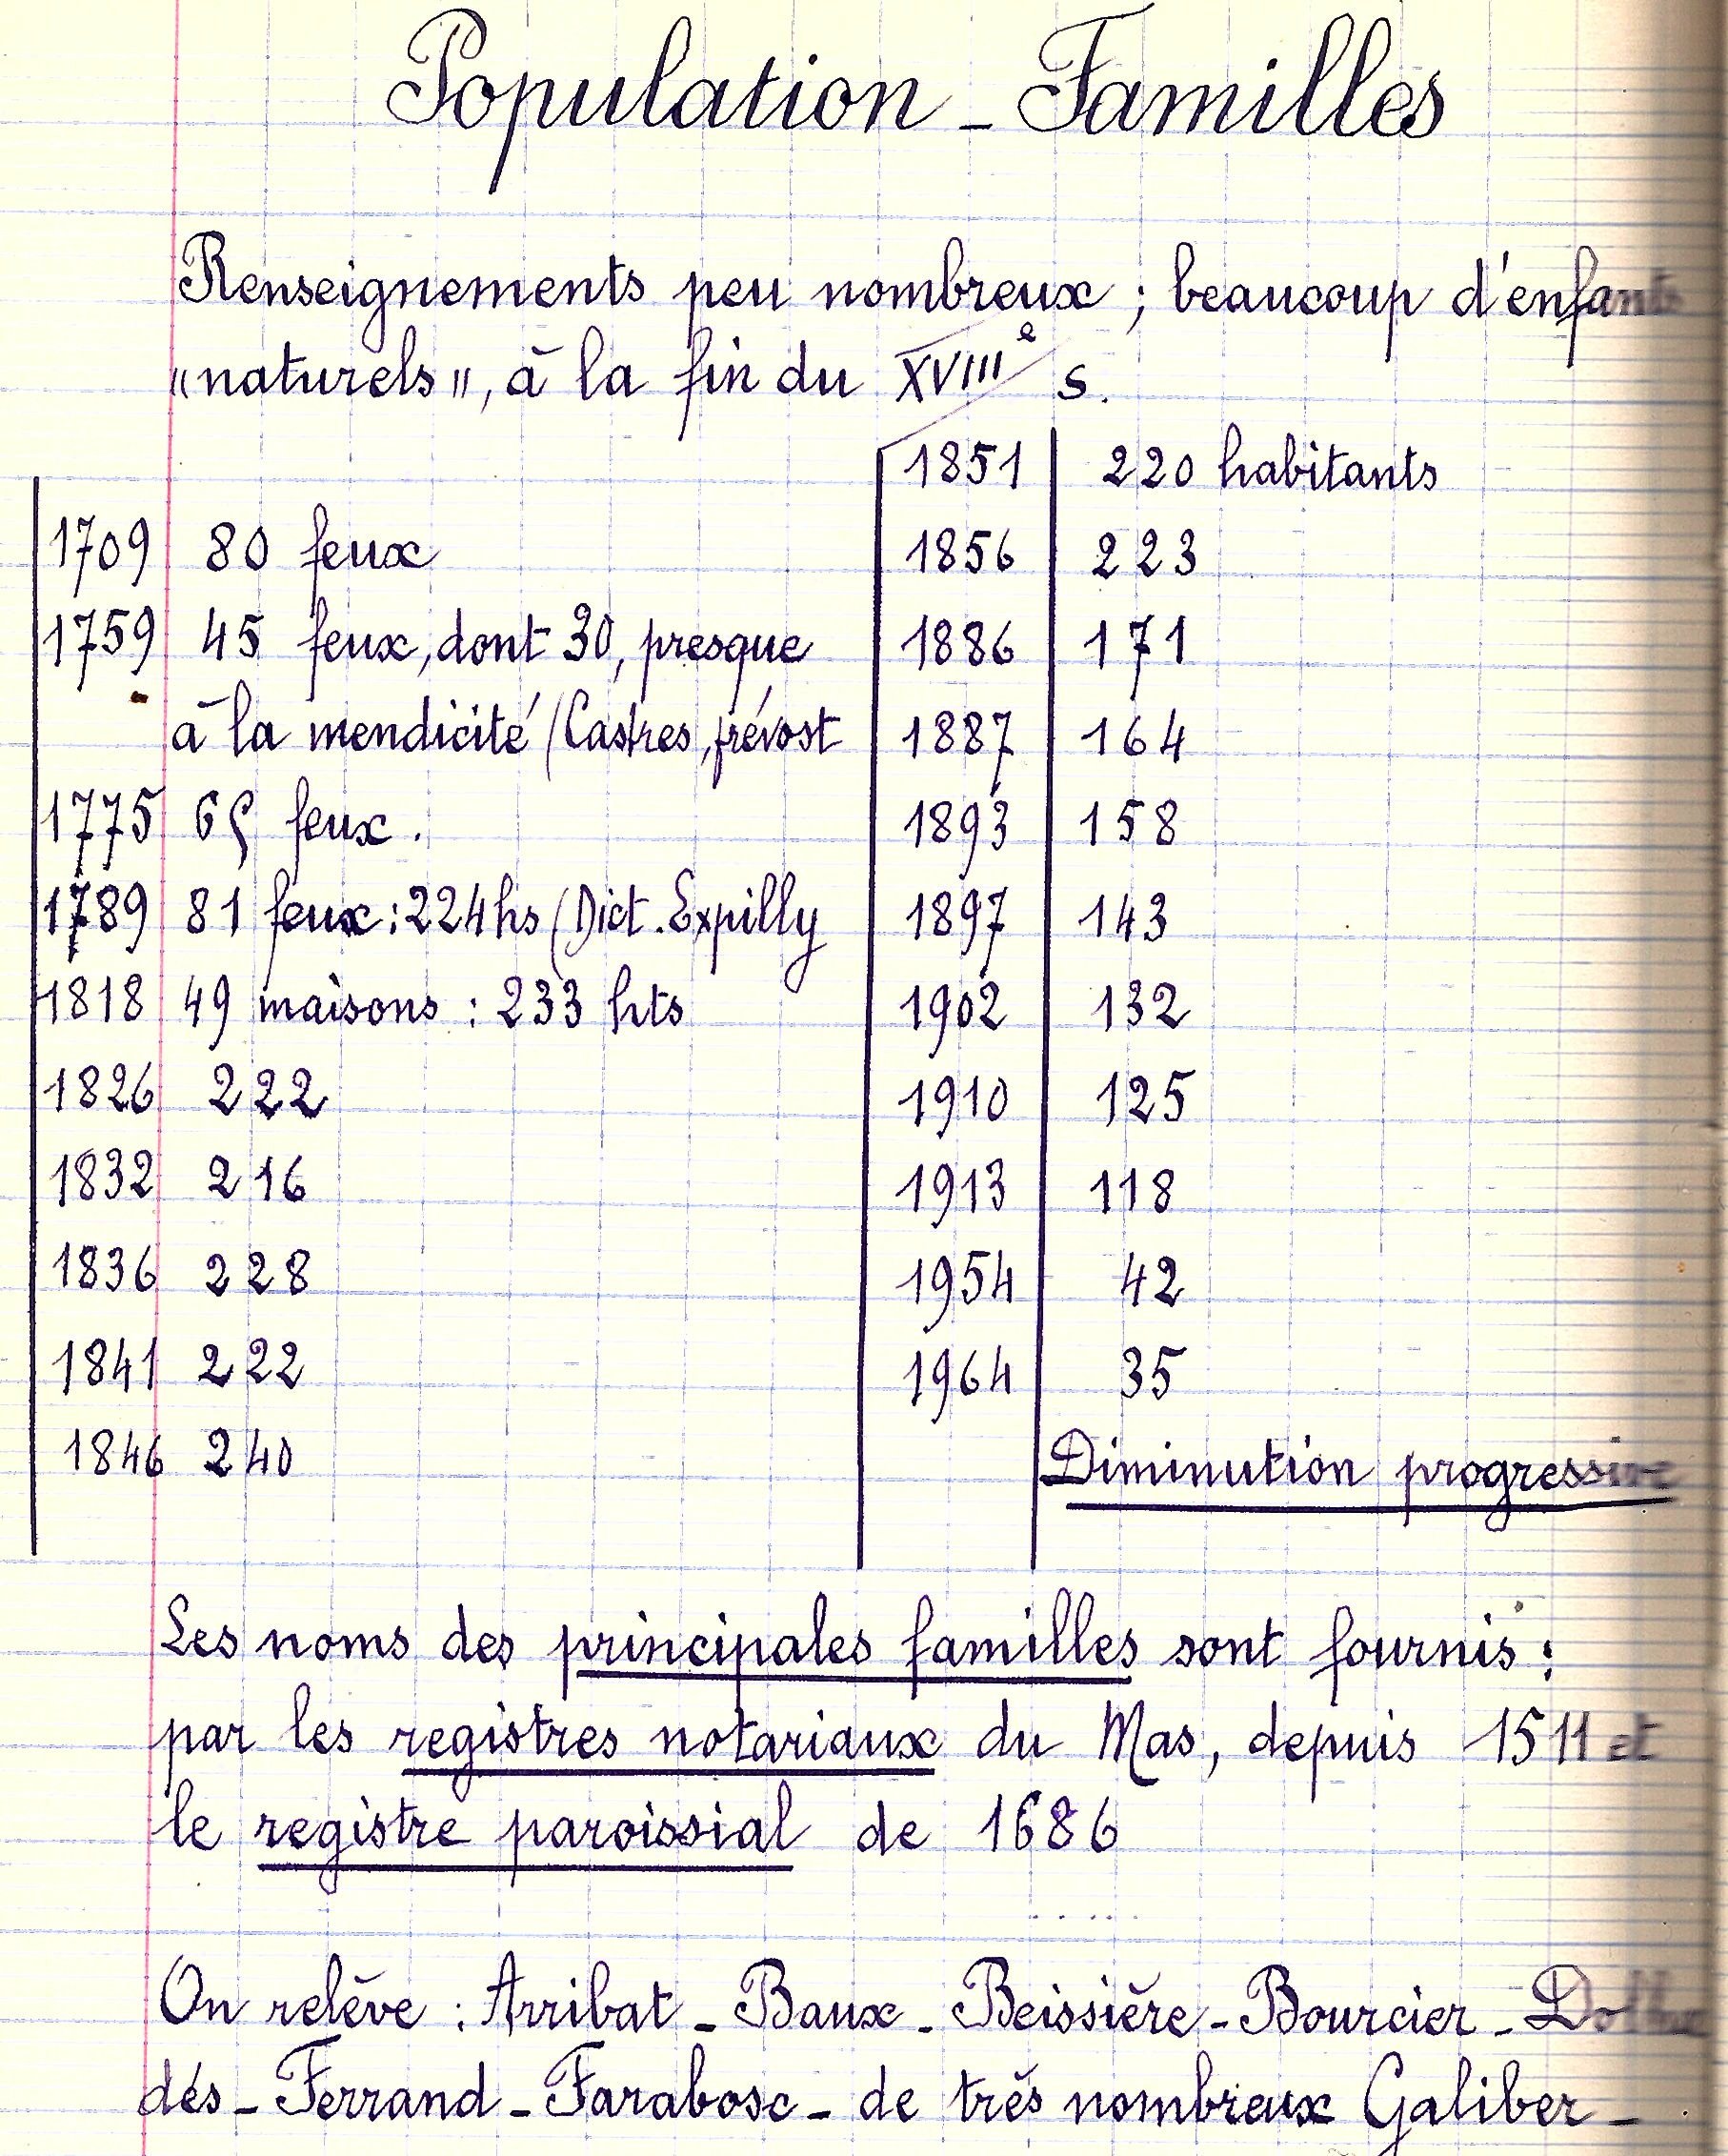 Population - Familles
Renseignements peu nombreux ; beaucoup d'enfants
"naturels", à la fin du XVIIIe s.
1709 80 feux
1759 45 feux, dont 30, presque
à la mendicité (Castres, prévost
1775 65 feux.
1789 81 feux : 224 hs (Dict. Expilly
1818 49 maisons : 233 hts
1826 222
1832 216
1836 228
1841 222
1846 240
1851 220 habitants
1856 223
1886 171
1887 164
1893 158
1897 143
1902 132
1910 125
1913 118
1954 42
1964 35
Diminution progressive
Les noms des principales familles sont fournis :
par les registres notariaux du Mas, depuis 1511 et
le registre paroissial de 1686
.....
On relève : Arribat - Baux - Beissière - Bourcier -
dés - Ferrand - Farabosc - de très nombreux Galiber -